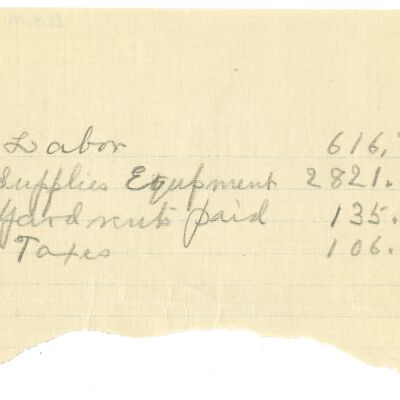 Labor 616.
Supplies Equpment 2821.
Yard rents paid 135.
Taxes 106.